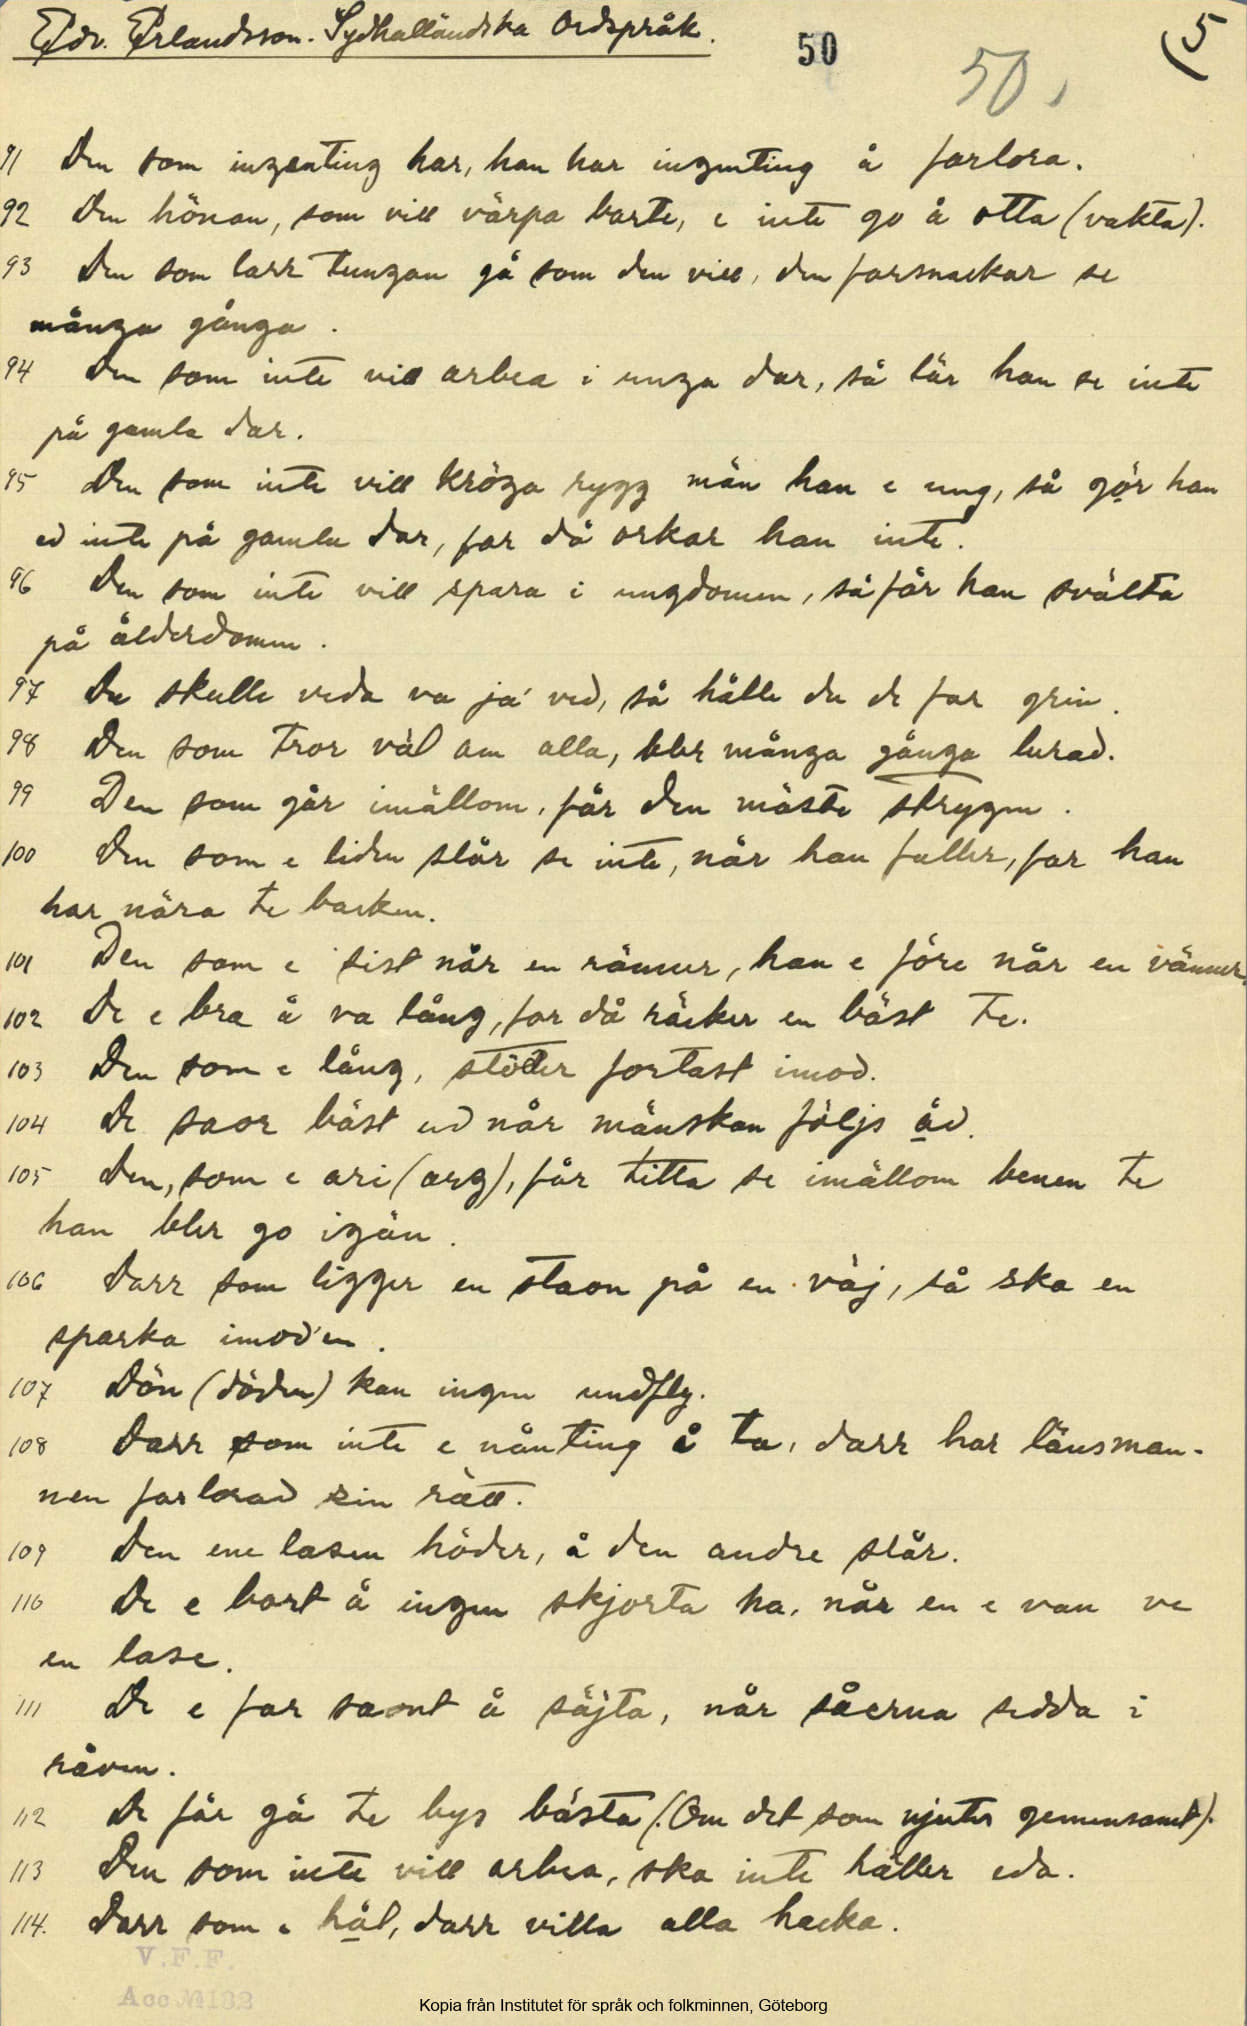 Edv. Erlandsson. Sydhalländska Ordspråk.
50
50,
(5
91 Den som ingenting har, han har ingenting å farlora.
92 Den hönan, som vill värpa barte, e inte go å otta (vakta).
93 Den som larr tungan gå som den vill, den farsnackar se
många gånga.
94 Den som inte vill arbea i unga dar, så lär han se inte
på gamla dar.
95 Den som inte vill kröga rygg män han e ung, så gör han
ed inte på gamla dar, far då orkar han inte.
96 Den som inte vill spara i ungdomen, så får han svälta
på ålderdomen.
97 Du skulle veda va ja' ved, så hålle du de far grin.
98 Den som tror väl am alla, bler många gånga lurad.
99 Den som går imällom, får den mäste strygen.
100 Den som e liden slår se inte, når han faller, far han
har nära te backen.
101 Den som e sist når en ränner, han e före når en vänner.
102 De e bra å va lång, far då räcker en bäst te.
103 Den som e lång, stöder fortast imod.
104 De saor bäst ud når mänskan följs åd.
105 Den, som e ari (arg), får titta se imällom benen te
han bler go igän.
106 Darr som ligger en staon på en väj, så ska en
sparka imod'en.
107 Dön (döden) kan ingen undfly.
108 Darr som inte e nånting å ta, darr har länsman-
nen farlorad sin rätt.
109 Den ene lasen höder, å den andre slår.
110 De e bart å ingen skjorta ha, når en e van ve
en lase.
111 De e far saont å säjta, når såerna sedda i
råven.
112 De får gå te bys bästa (Om det som njutes gemensamt).
113 Den som inte vill arbea, ska inte häller eda.
114. Darr som e hål, darr villa alla hacka.
V.F.F.
Acc № 132
Kopia från Institutet för språk och folkminnen, Göteborg